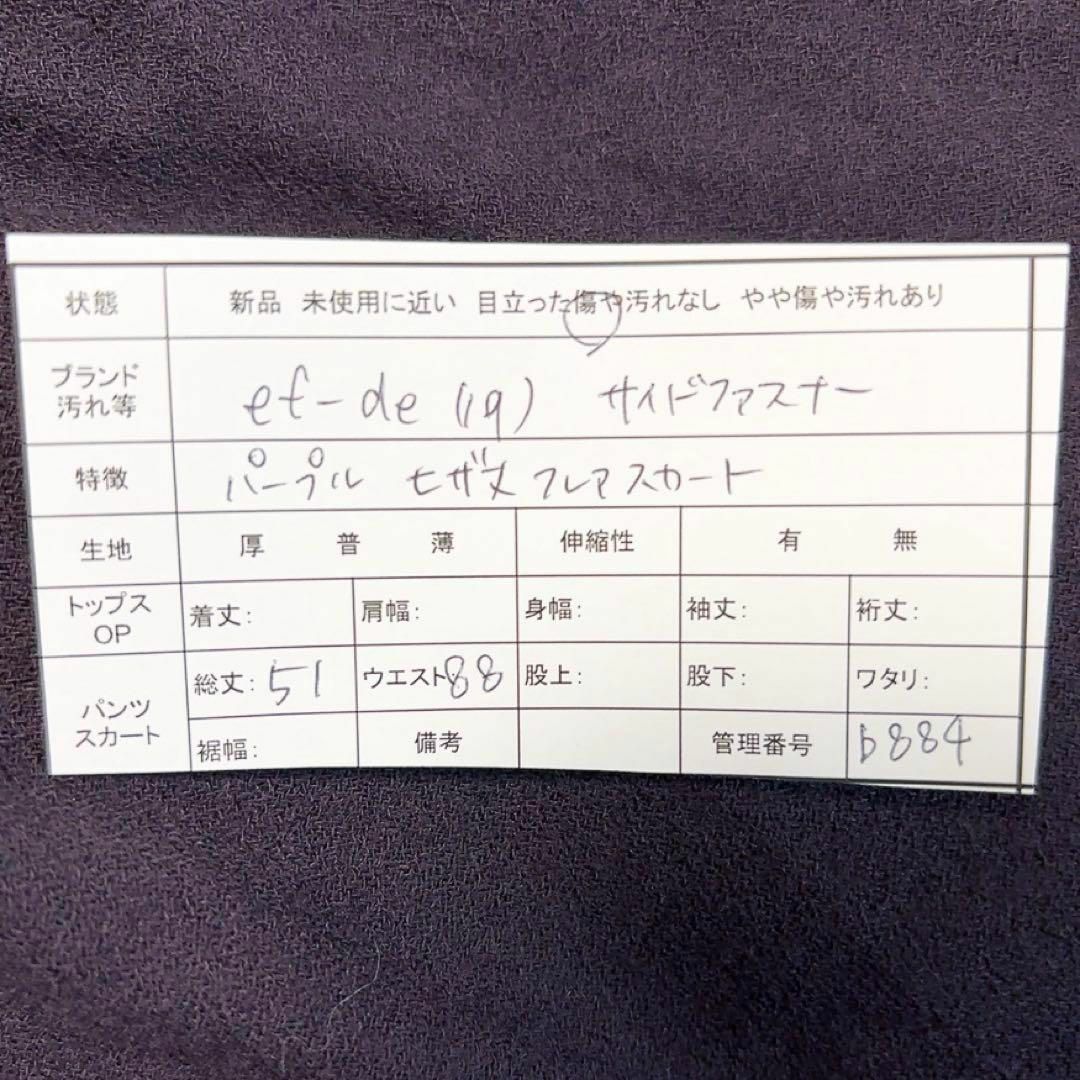 状態 新品 未使用に近い 目立った傷や汚れなし やや傷や汚れあり
ブランド
汚れ等
ef-de (19) サイドファスナー
特徴 パープル ヒザ丈 フレアスカート
生地 厚 普 薄 伸縮性 有 無
トップス
OP
着丈: 肩幅: 身幅: 袖丈: 裄丈:
パンツ
スカート
総丈: 51 ウエスト 88 股上: 股下: ワタリ:
裾幅: 備考 管理番号 b884